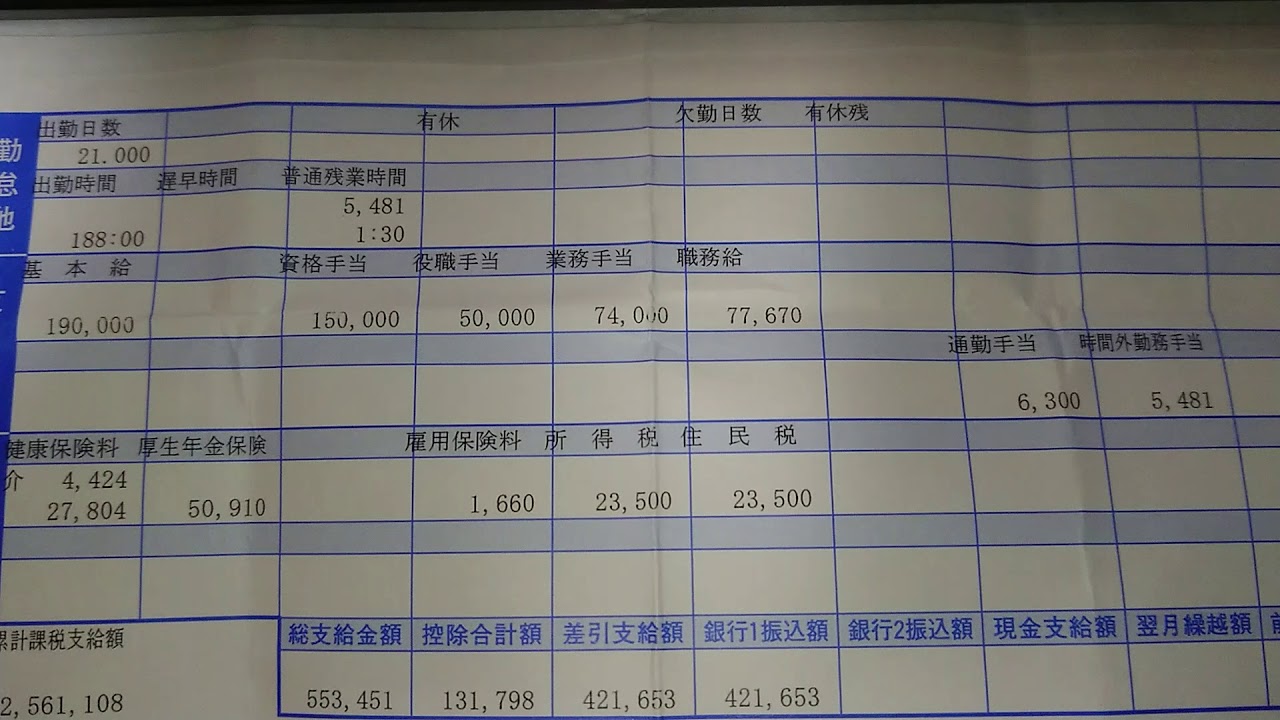 勤怠他
出勤日数 有休 欠勤日数 有休残
21.000
出勤時間 遅早時間 普通残業時間
5,481
188:00 1:30
基本給 資格手当 役職手当 業務手当 職務給
190,000 150,000 50,000 74,000 77,670
通勤手当 時間外勤務手当
6,300 5,481
健康保険料 厚生年金保険 雇用保険料 所得税 住民税
介 4,424
27,804 50,910 1,660 23,500 23,500
累計課税支給額 総支給金額 控除合計額 差引支給額 銀行1振込額 銀行2振込額 現金支給額 翌月繰越額
2,561,108 553,451 131,798 421,653 421,653